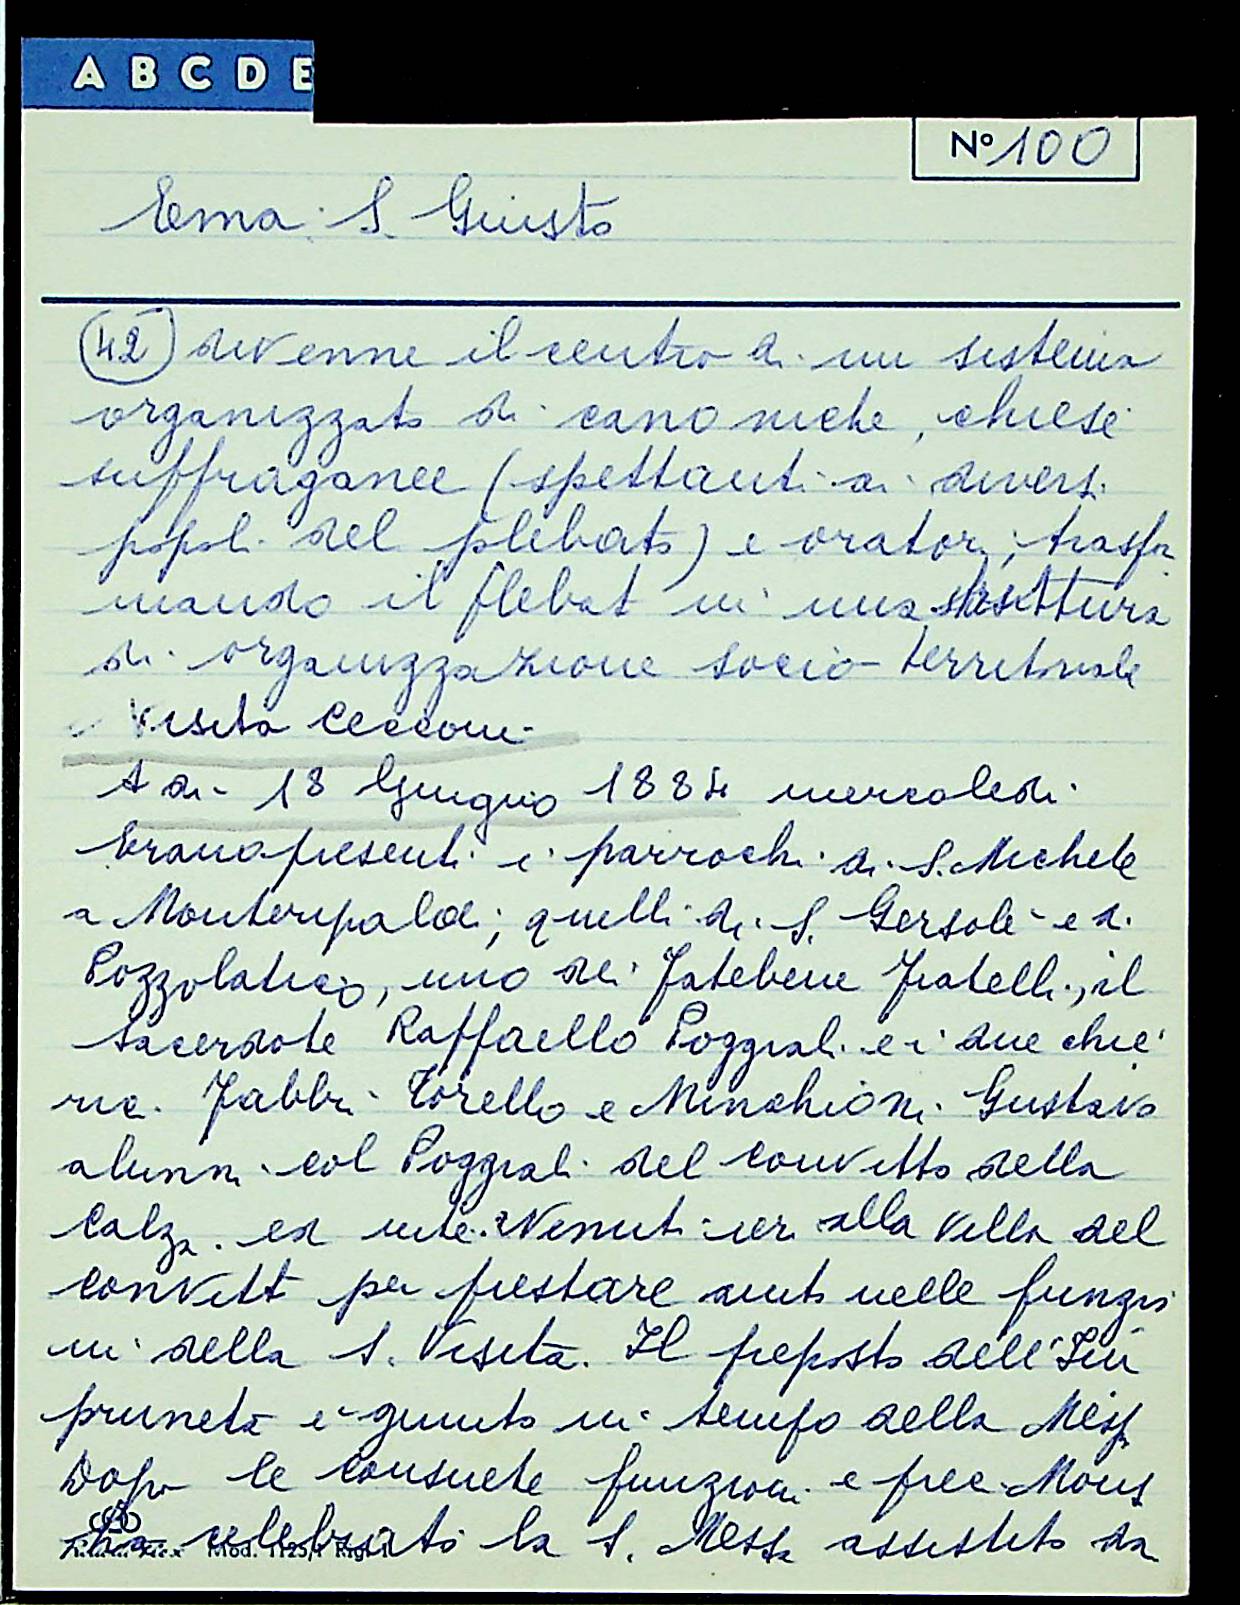 A B C D E
Nº 100
Ema: S. Giusto
(42) divenne il centro di un sistema
organizzato di canoniche, chiese
suffraganee (spettanti ai diversi
popoli del plebato) e oratori, trasfor
mando il plebat in una struttura
di organizzazione socio-territoriale
Visita Cecconi
A di 18 Giugno 1884 mercoledi
Erano presenti i parrochi di S. Michele
a Monteripaldi; quelli di S. Gersolè e di
Pozzolatico, uno dei Fatebene Fratelli, il
sacerdote Raffaello Poggiali e i due chie
rici Fabbri Torello e Minchioni Gustavo
alunni col Poggiali del convitto della
Calza. ed Venuti ieri alla villa del
convitt per prestare aiuto nelle funzio
ni della S. Visita. Il preposto dell'Im
pruneta è giunto in tempo della Messa
Dopo le consuete funzioni e preci Mons
ha celebrato la S. Messa assistito da
Mod.